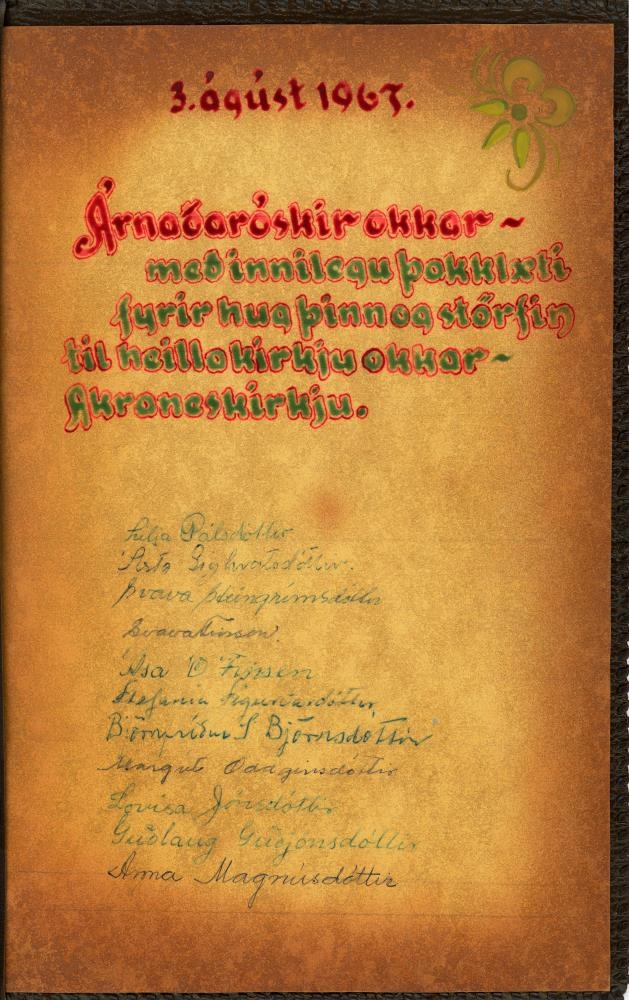 3. ágúst 1967.
Árnaðaróskir okkar ~
með innilegu þakklæti
fyrir hug þinn og störfin
til heilla kirkju okkar ~
Akraneskirkju.
Lilja Pálsdóttir
Ásta Sighvatsdóttir.
Svava Steingrímsdóttir
Svava Finsen.
Ása Ó Finsen
Stefanía Sigurðardóttir,
Björnfríður S Björnsdóttir
Margrét Oddgeirsdóttir
Lovísa Jónsdóttir
Guðlaug Guðjónsdóttir
Anna Magnúsdóttir